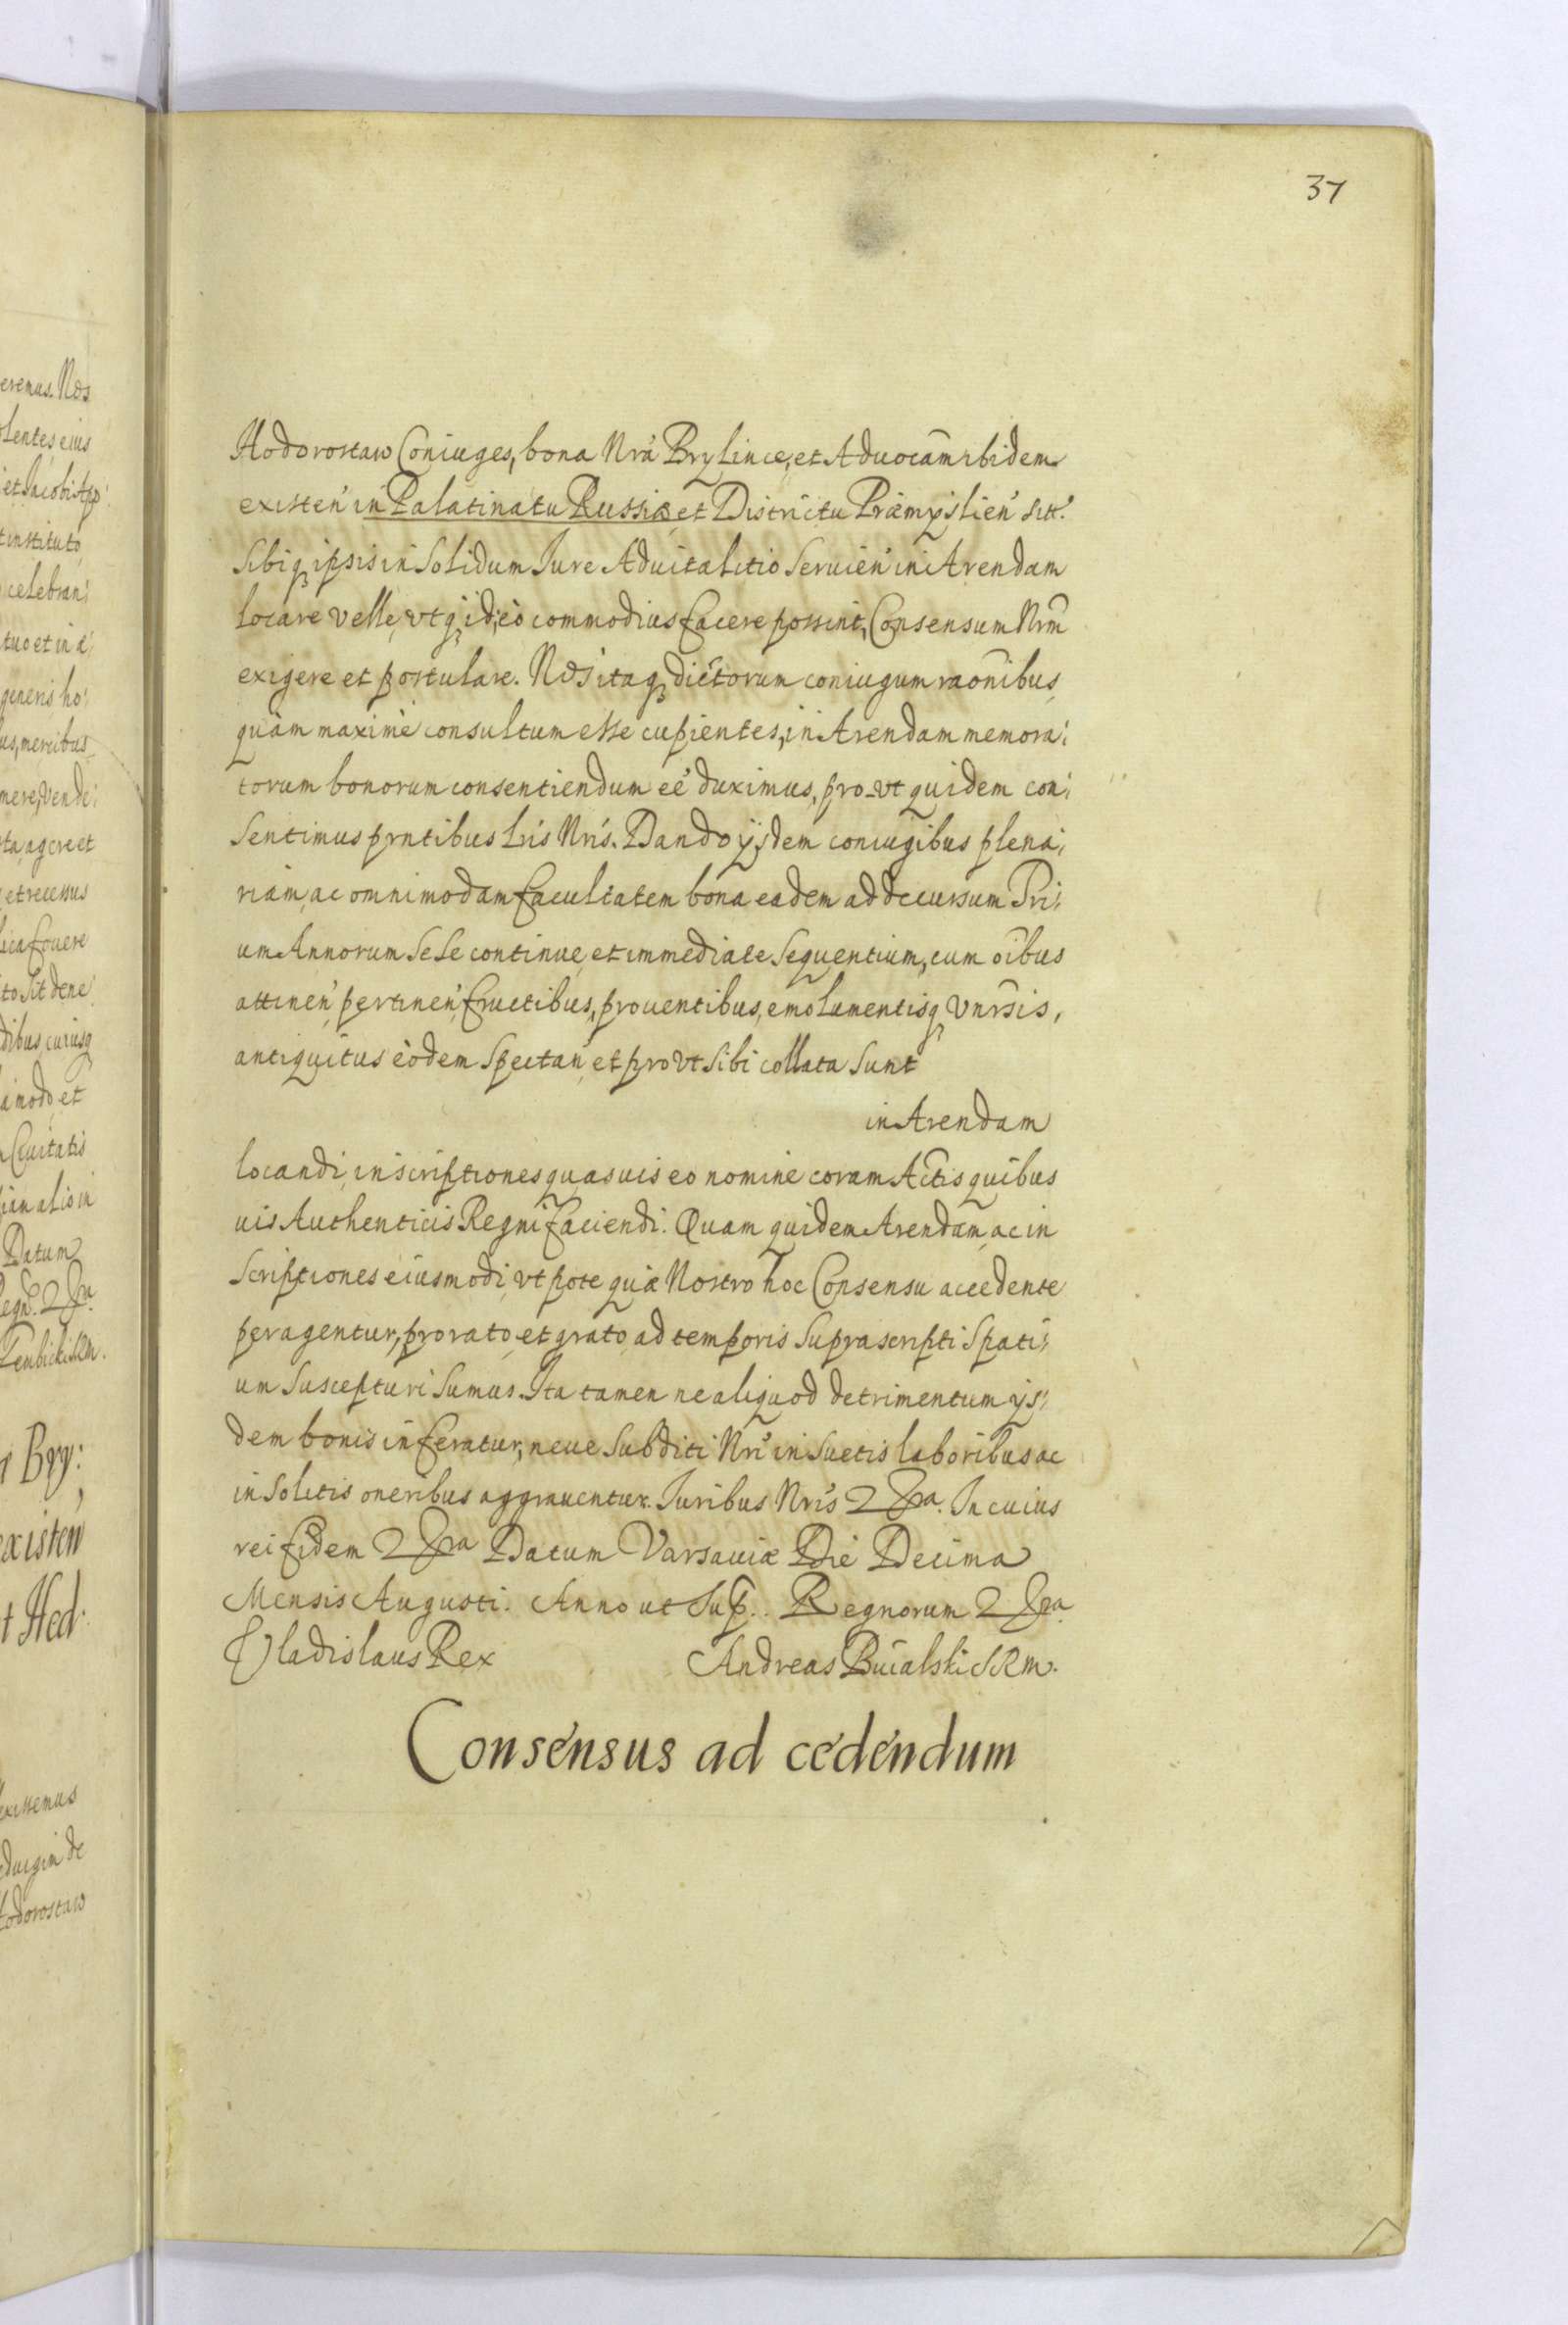 37
Hodorostaw Coniuges, bona Nrá Brylince, et Aduocãm ibidem
existen' in Palatinatu Russiæ et Districtu Præmyslien' sit'.
Sibiq ipsis in Solidum Jure Aduitalitio Seruien' in Arendam
locare velle, vtq id, eò commodius facere possint, Consensum Nrm̃
exigere et postulare. Nos itaq dictorum coniugum raõnibus
quàm maximè consultum esse cupientes, in Arendam memora:
torum bonorum consentiendum eé duximus, pro-vt quidem con:
Sentimus prntibus Lrís Nrís. Dando ijsdem coniugibus plena:
riam, ac omnimodam facultatem bona eadem ad decursum Tri:
um Annorum Sese continue et immediate Sequentium, cum oĩbus
attinen' pertinen' fructibus, prouentibus, emolumentisq Vnrsis,
antiquitus eòdem Spectan' et provt Sibi collata Sunt
in Arendam
locandi, inscriptiones quasuis eo nomine coram Actis quibus
uis Authenticis Regni faciendi. Quam quidem Arendam, ac in
Scriptiones eiusmodi, vt pote quæ Nostro hoc Consensu accedente
peragentur, pro rato et grato ad temporis Suprascripti Spati:
um Suscepturi Sumus. Ita tamen ne aliquod detrimentum ijs:
dem bonis inferatur, neue Subditi Nrí in Suetis laboribus ac
in Solitis oneribus aggrauentur. Juribus Nrís &ra. In cuius
rei fidem &ra Datum Varsauiæ Die Decima
Mensis Augusti. Anno ut Sup. Regnorum &ra
Vladislaus Rex Andreas Buialski SRM.
Consensus ad cedendum